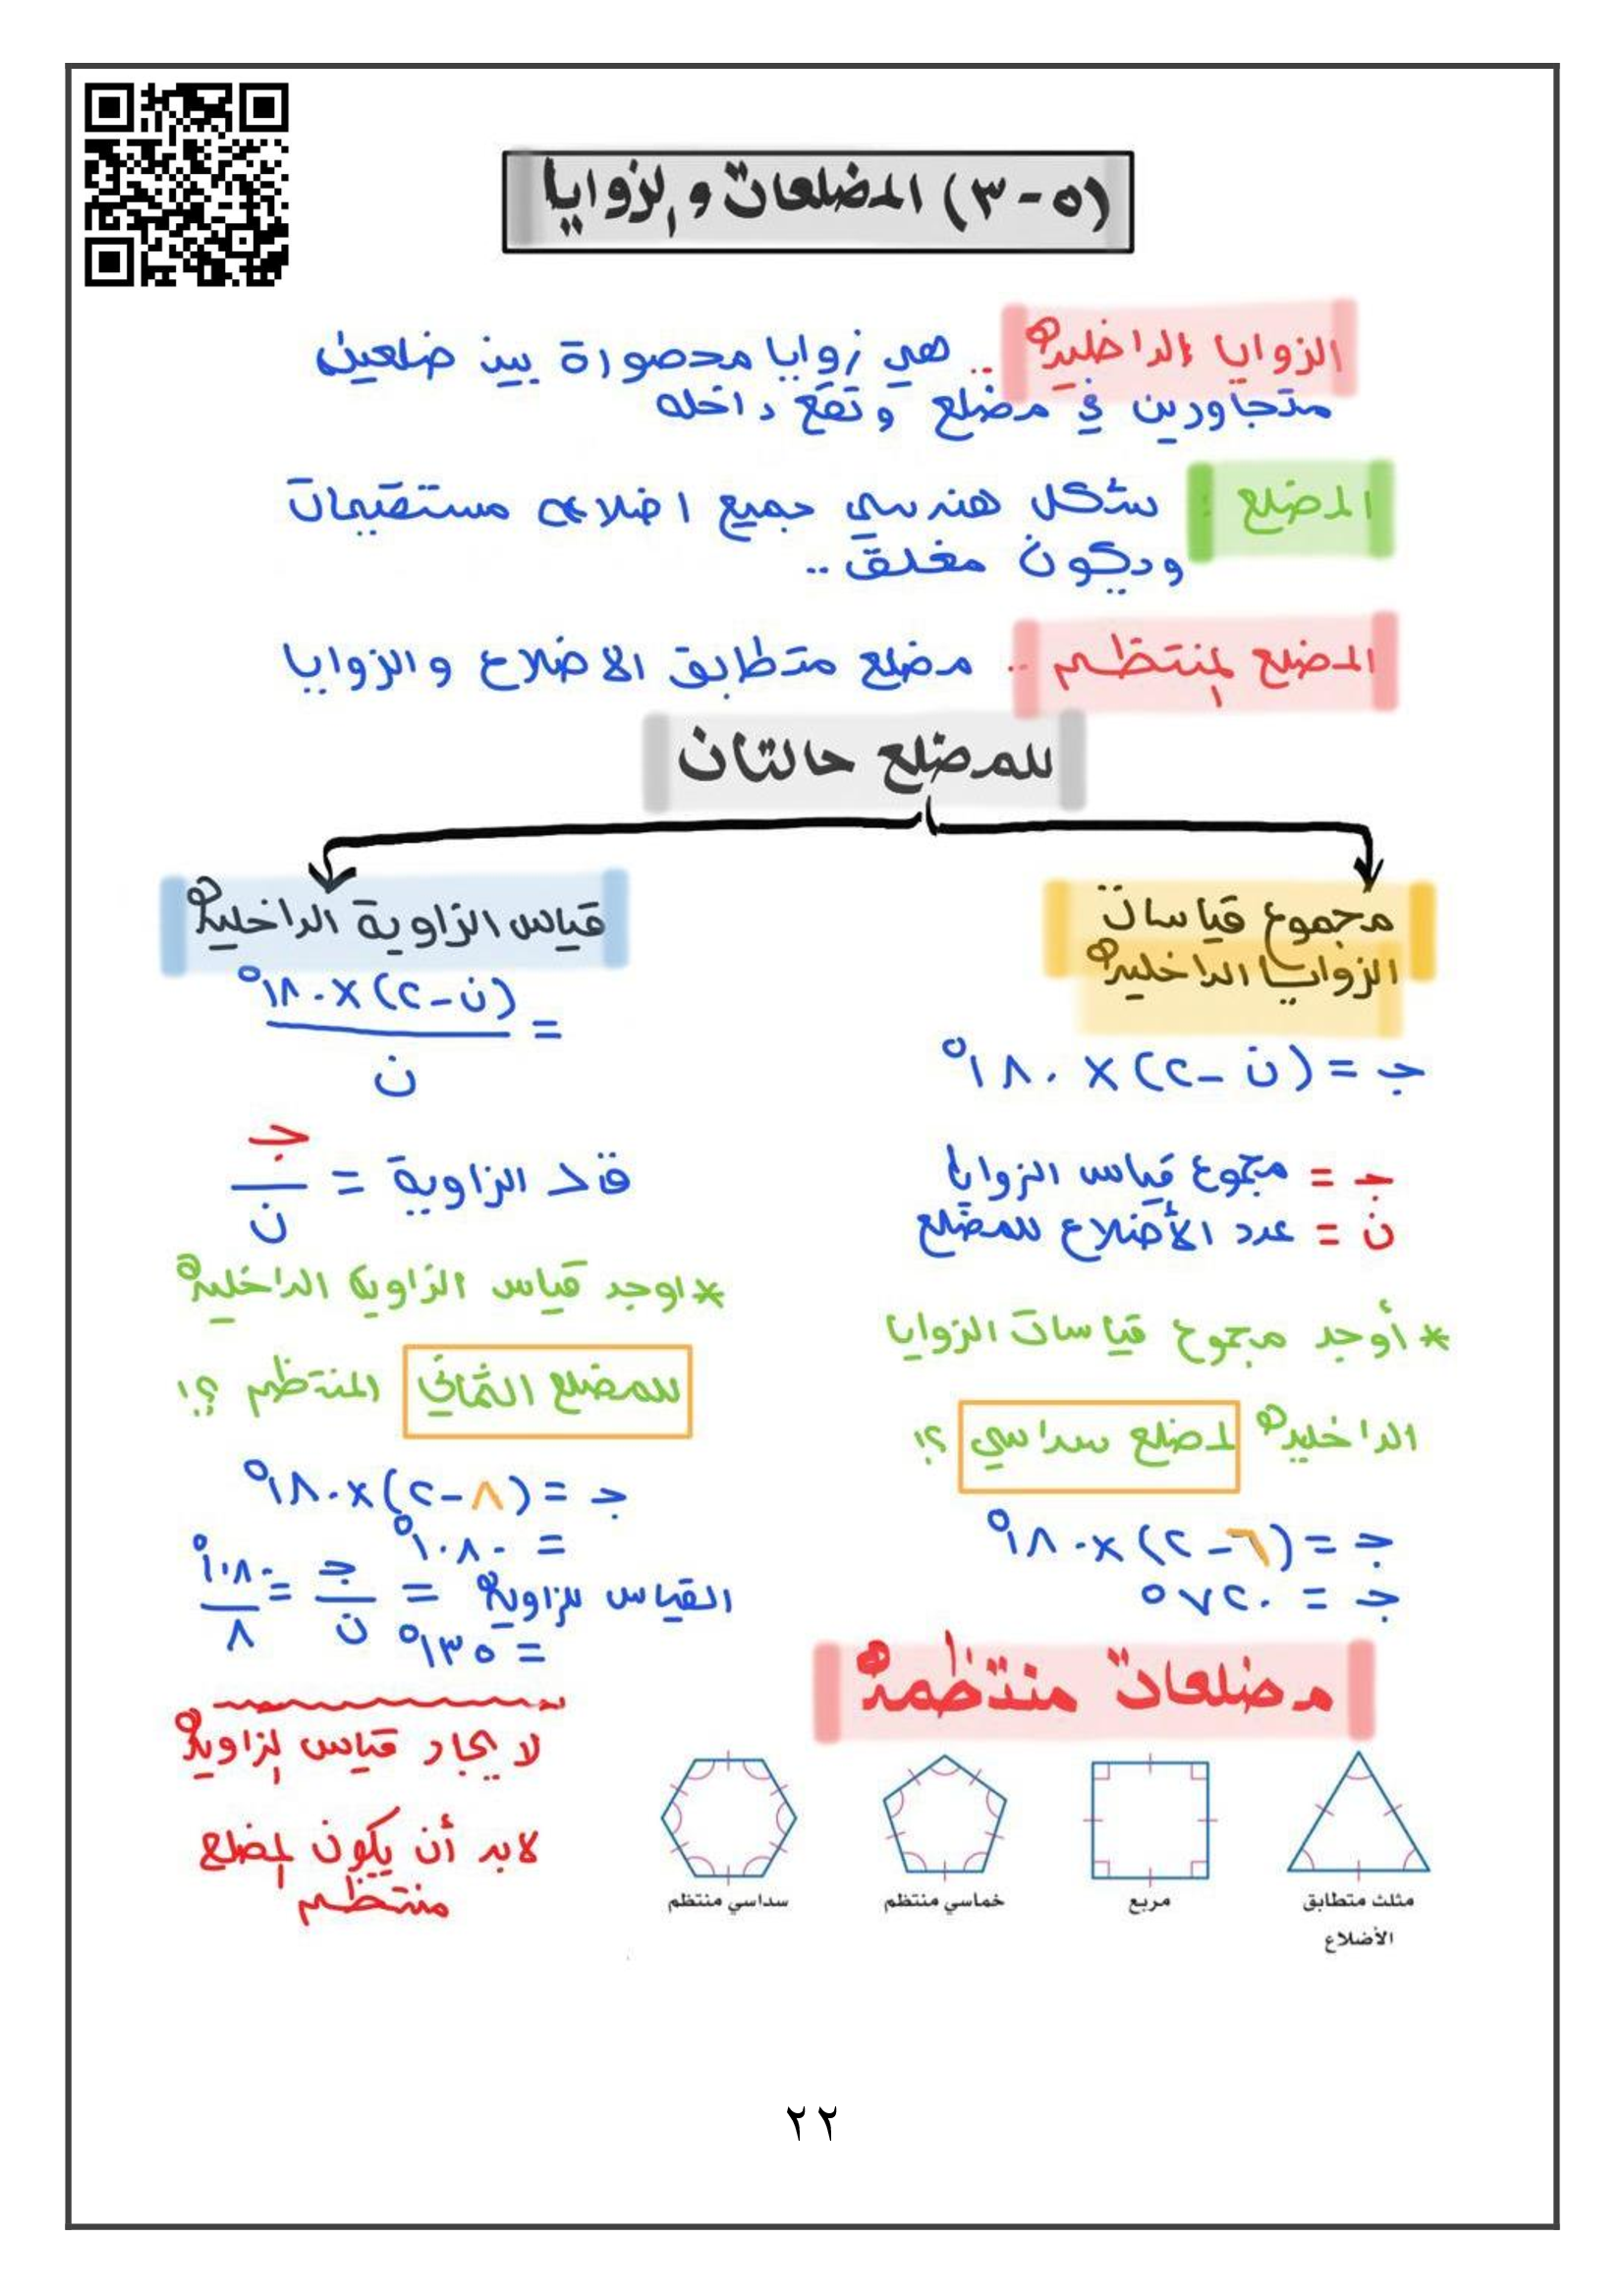 (٥-٣) المضلعات والزوايا
الزوايا الداخلية .. هي زوايا محصورة بين ضلعين
متجاورين في مضلع وتقع داخله
المضلع : شكل هندسي جميع اضلاعه مستقيمات
ويكون مغلق ..
المضلع المنتظم .. مضلع متطابق الاضلاع والزوايا
للمضلع حالتان
مجموع قياسات
الزوايا الداخلية
جـ = (ن - ٢) × ١٨٠°
جـ = مجموع قياس الزوايا
ن = عدد الأضلاع للمضلع
* أوجد مجموع قياسات الزوايا
الداخلية لمضلع سداسي ؟!
جـ = (٦ - ٢) × ١٨٠°
جـ = ٧٢٠°
قياس الزاوية الداخلية
= (ن - ٢) × ١٨٠°
ن
الزاوية = جـ
ن
* اوجد قياس الزاوية الداخلية
للمضلع الثماني المنتظم ؟!
جـ = (٨ - ٢) × ١٨٠°
= ١٠٨٠°
القياس للزاوية = جـ/ن = ١٠٨٠°/٨
= ١٣٥°
لايجاد قياس الزاوية
لابد أن يكون المضلع
منتظم
مضلعات منتظمة
مثلث متطابق
الأضلاع
مربع
خماسي منتظم
سداسي منتظم
٢٢